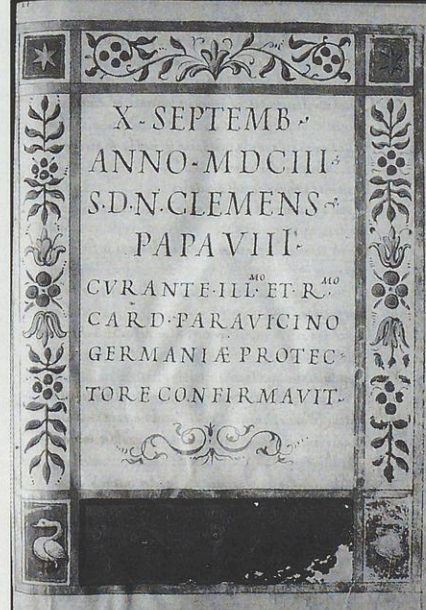 X-SEPTEMB·
ANNO-MDCIII·
S·D·N·CLEMENS
PAPA VIII·
CVRANTE·ILL^MO ET·R^MO
CARD·PARAVICINO
GERMANIÆ PROTEC-
TORE CONFIRMAVIT